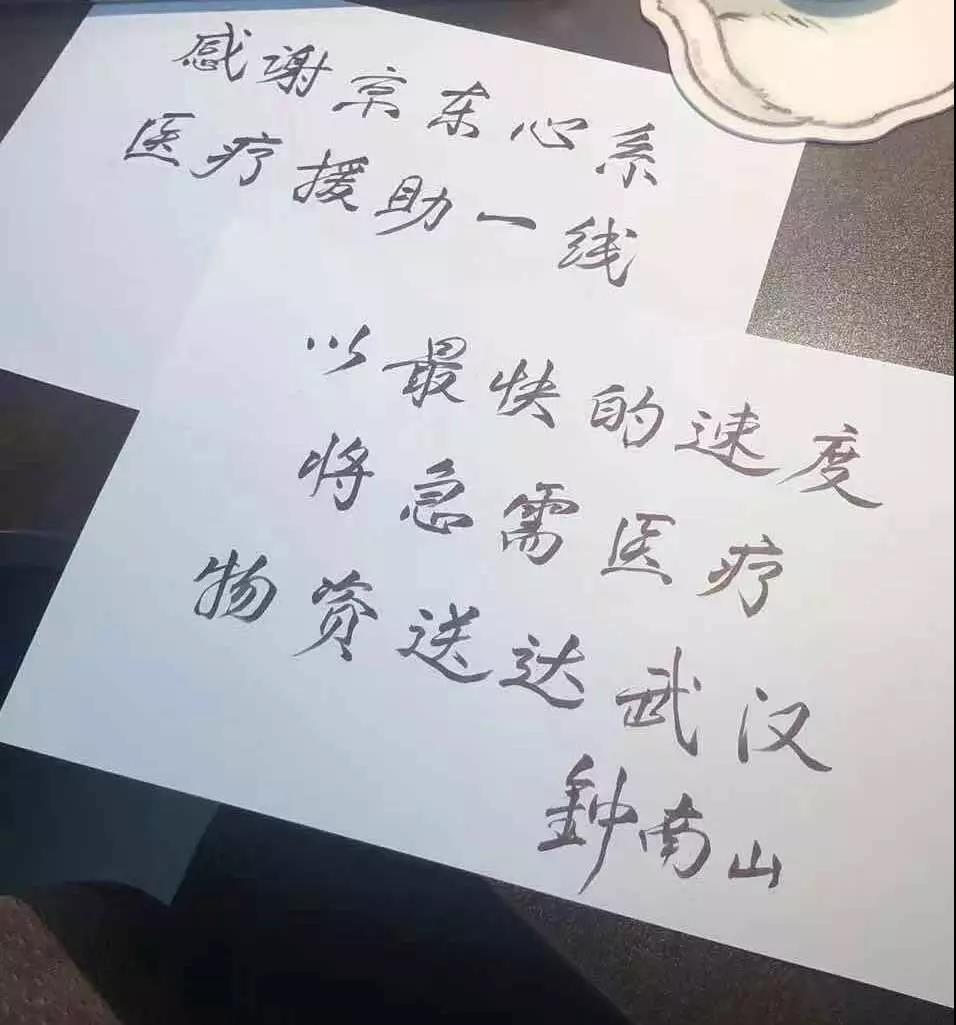 感谢京东心系
医疗援助一线
以最快的速度
将急需医疗
物资送达武汉
鈡南山